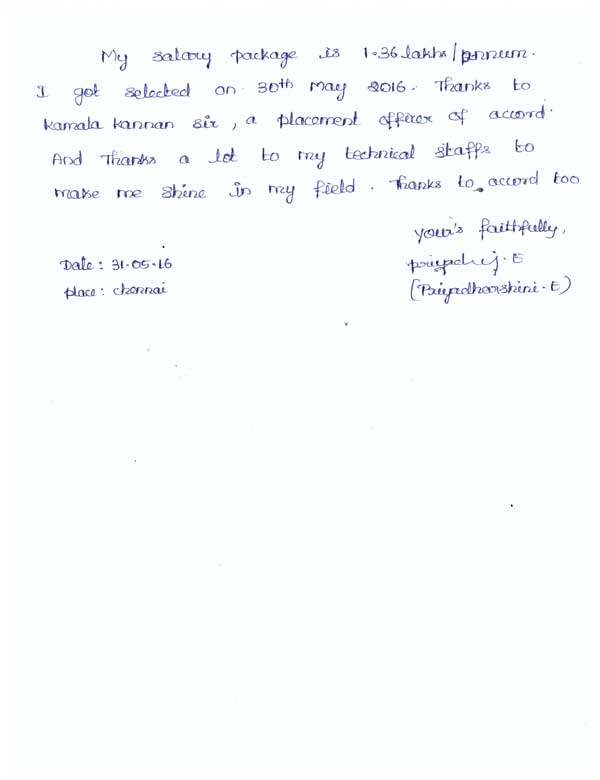 My salary package is 1.36 lakhs/annum.
I got selected on 30th May 2016. Thanks to
kamala kannan sir, a placement officer of accord.
And Thanks a lot to my technical staffs to
make me shine in my field. Thanks to accord too
your's faithfully,
Date: 31-05-16
place: chennai
(Priyadharshini.E)